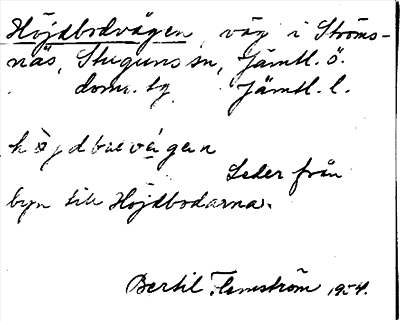 Höjdbodvägen, väg i Ströms-
näs, Stuguns sn, Jämtl. ö.
doms. tg Jämtl. l.
höjdbuvägen
Leder från
byn till Höjdbodarna.
Bertil Flemström 1954.